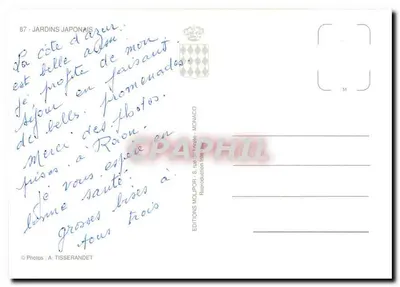 87 - JARDINS JAPONAIS
La côte d'azur
est belle aussi.
Je profite de mon
séjour en faisant
des belles promenades.
Merci des photos
prises à Raon.
Je vous espère en
bonne santé.
grosses bises à
tous trois
© Photos : A. TISSERANDET
EDITIONS MOLIPOR - 5, rue MONACO
Reproduction
CPAPHIL